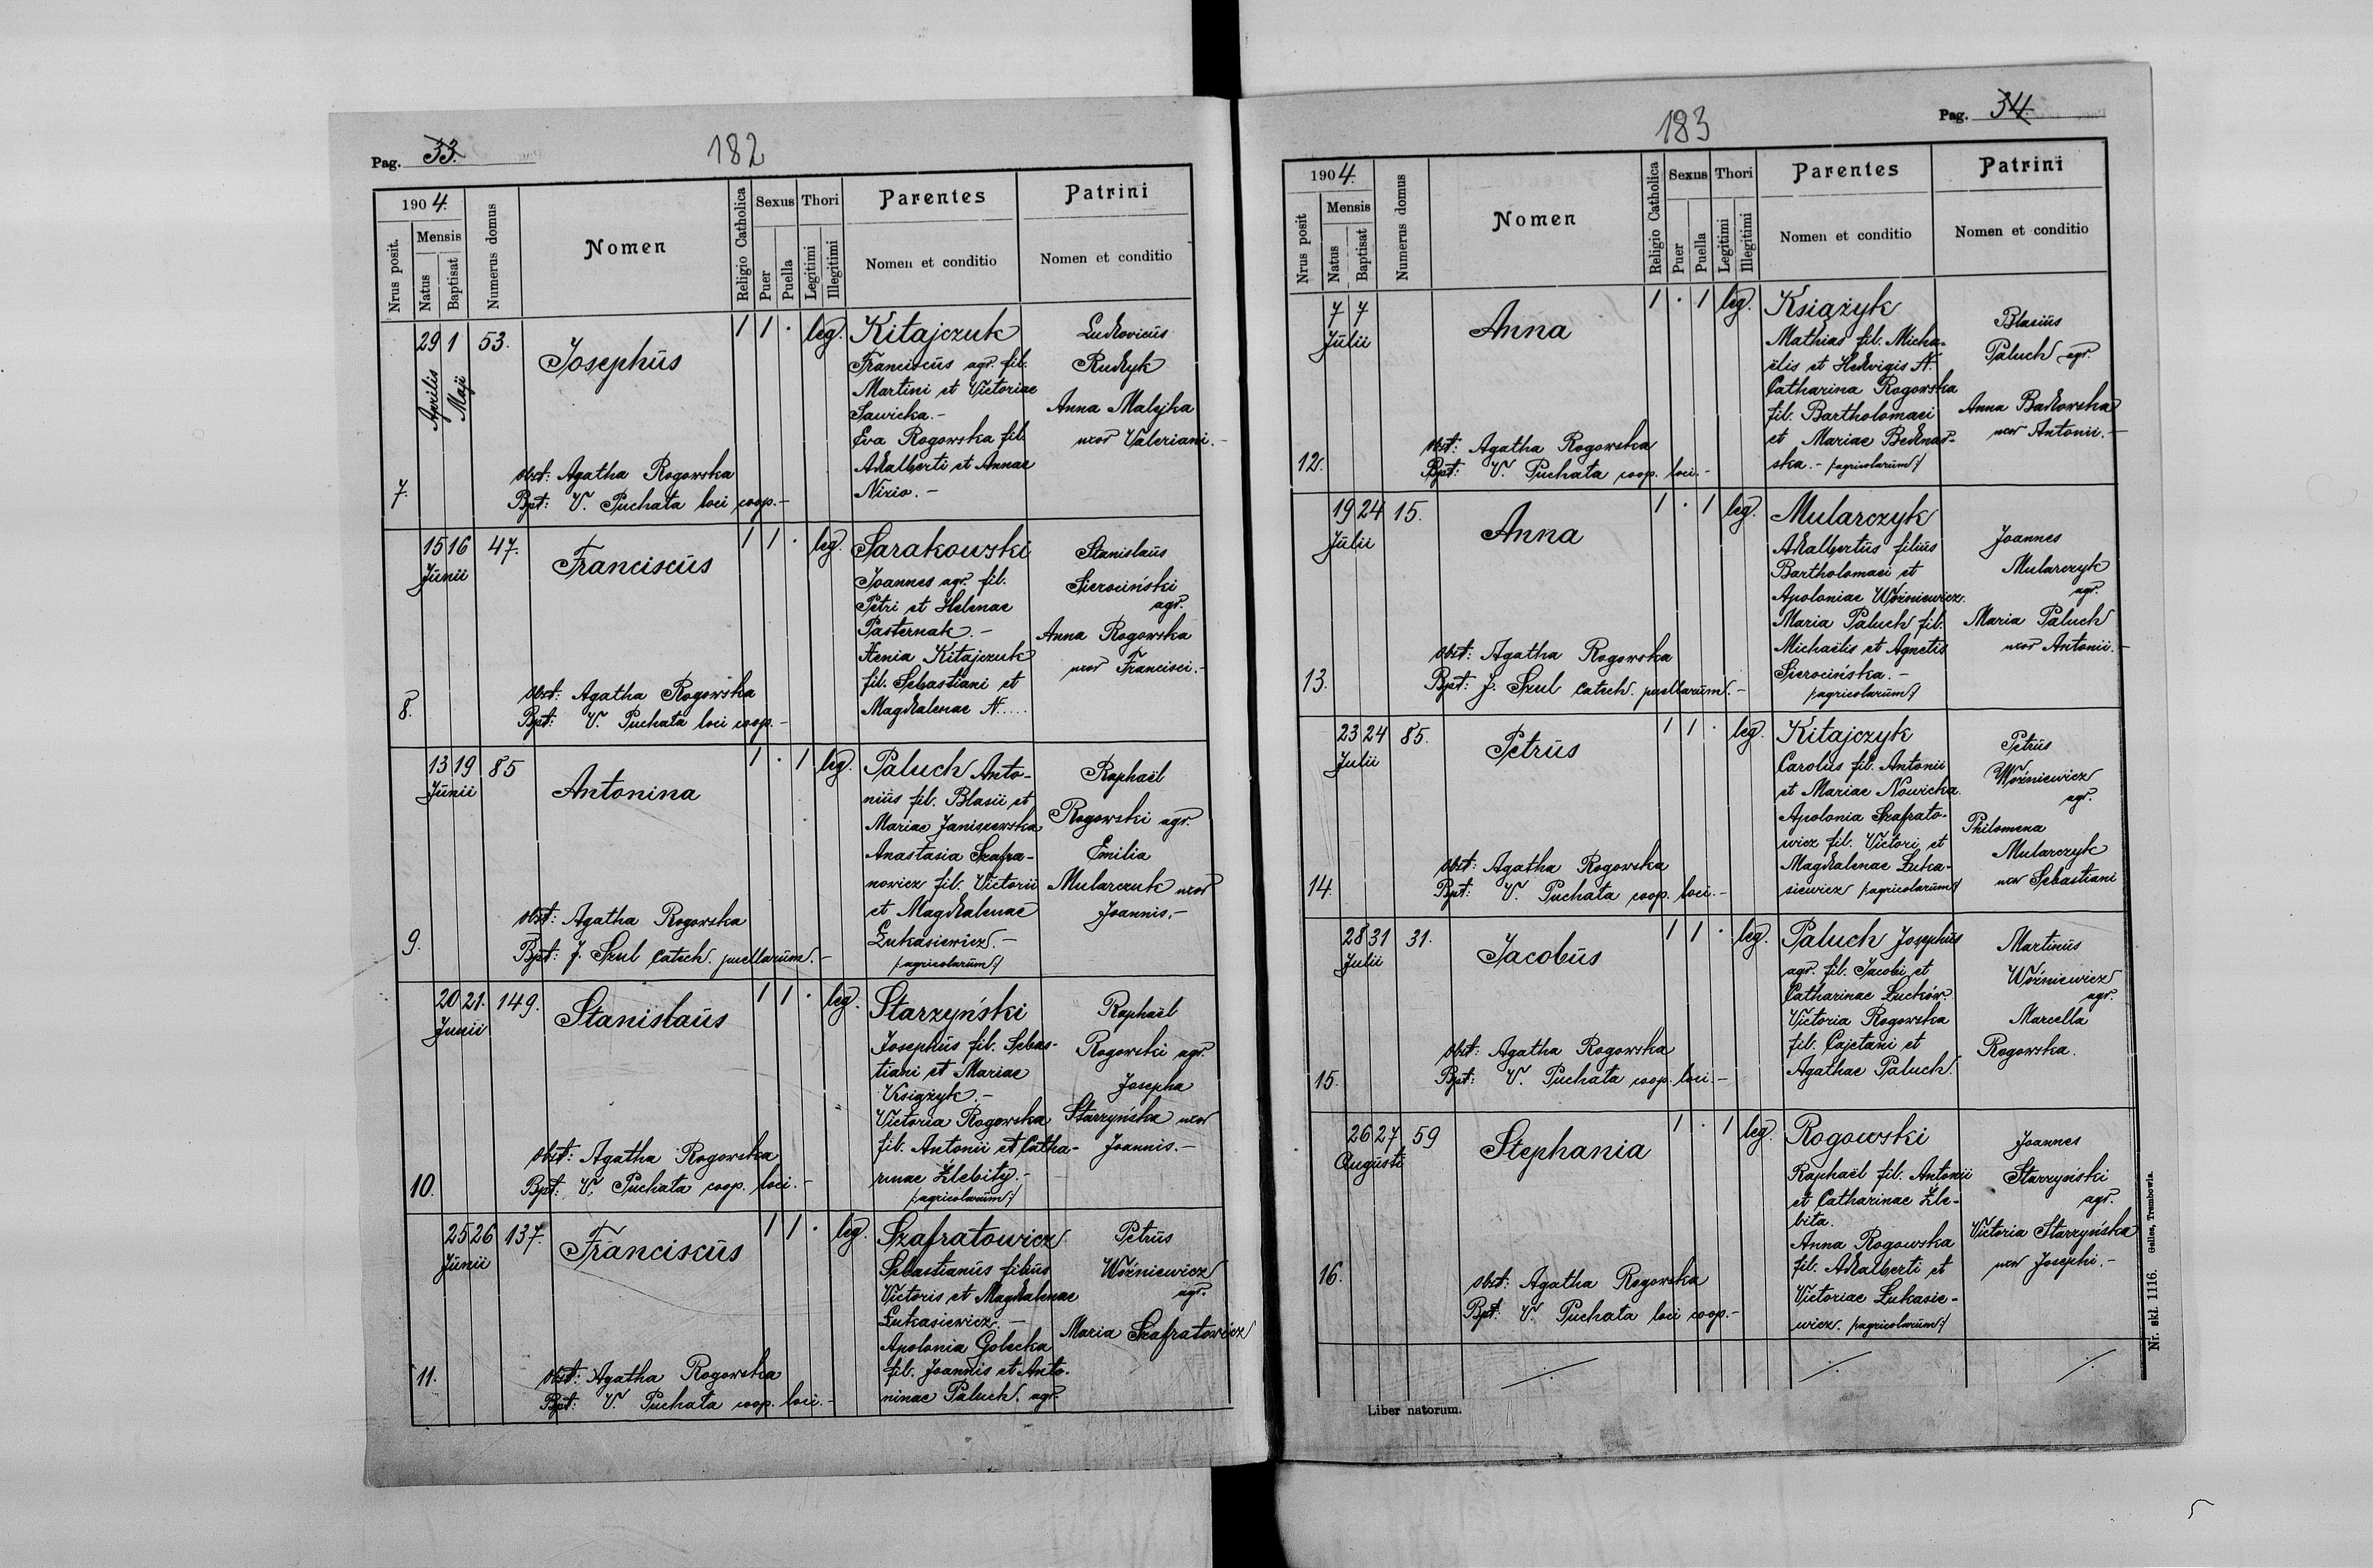 Pag. 33.
182
1904.
Nrus posit.
Mensis
Natus
Baptisat
Numerus domus
Nomen
Religio Catholica
Sexus
Puer
Puella
Thori
Legitimi
Illegitimi
Parentes
Nomen et conditio
Patrini
Nomen et conditio
7.
29 1 53.
Aprilis
Maji
Josephus
obst: Agatha Rogowska
Bpt: V. Puchata loci coop.-
1 1 · leg.
Kitajczuk
Franciscus agr. fil.
Martini et Victoriae
Sawicka.-
Eva Rogowska fil.
Adalberti et Annae
Nizio.-
Ludovicus
Rudyk
Anna Malejka
uxor Valeriani.-
8.
15 16 47.
Junii
Franciscus
obst: Agatha Rogowska
Bpt: V. Puchata loci coop.-
1 1 · leg.
Sarakowski
Joannes agr. fil.
Petri et Helenae
Pasternak.-
Xenia Kitajczuk
fil. Sebastiani et
Magdalenae N....
Stanislaus
Sierociński
agr.
Anna Rogowska
uxor Francisci.-
9.
13 19 85
Junii
Antonina
obst: Agatha Rogowska
Bpt: J. Szul Catech. puellarum.-
1 · 1 leg.
Paluch Anto-
nius fil. Blasii et
Mariae Janiszewska
Anastasia Szafra-
nowicz fil. Victorii
et Magdalenae
Łukasiewicz.-
/:agricolarum:/
Raphaël
Rogowski agr.
Emilia
Mularczuk uxor
Joannis.-
10.
20 21. 149.
Junii
Stanislaus
obst: Agatha Rogowska
Bpt: V. Puchata coop. loci.-
1 1 · leg.
Starzyński
Josephus fil. Sebas-
tiani et Mariae
Książyk.-
Victoria Rogowska
fil. Antonii et Catha-
rinae Źlebity.-
/:agricolarum:/
Raphaël
Rogowski agr.
Josepha
Starzyńska uxor
Joannis.-
11.
25 26 137.
Junii
Franciscus
obst: Agatha Rogowska
Bpt: V. Puchata coop. loci.-
1 1 · leg.
Szafratowicz
Sebastianus filius
Victoris et Magdalenae
Łukasiewicz.-
Apolonia Golecka
fil. Joannis et Anto-
ninae Paluch. agr.
Petrus
Woźniewicz
agr.
Maria Szafratowicz
183
Pag. 34.
1904.
Nrus posit
Mensis
Natus
Baptisat
Numerus domus
Nomen
Religio Catholica
Sexus
Puer
Puella
Thori
Legitimi
Illegitimi
Parentes
Nomen et conditio
Patrini
Nomen et conditio
12.
7 7
Julii
Anna
obst: Agatha Rogowska
Bpt: V. Puchata coop. loci.-
1 · 1 leg.
Książyk
Mathias fil. Micha-
ëlis et Hedvigis N.
Catharina Rogowska
fil. Bartholomaei
et Mariae Bednar-
ska.- /:agricolarum:/
Blasius
Paluch agr.
Anna Badowska
uxor Antonii.-
13.
19 24 15.
Julii
Anna
obst: Agatha Rogowska
Bpt: J. Szul Catech. puellarum.-
1 · 1 leg.
Mularczyk
Adalbertus filius
Bartholomaei et
Apoloniae Woźniewicz.
Maria Paluch fil.
Michaëlis et Agnetis
Sierocińska.-
/:agricolarum:/
Joannes
Mularczyk
agr.
Maria Paluch
uxor Antonii.-
14.
23 24 85.
Julii
Petrus
obst: Agatha Rogowska
Bpt: V. Puchata coop. loci.-
1 1 · leg.
Kitajczyk
Carolus fil. Antonii
et Mariae Nowicka.
Apolonia Szafrato-
wicz fil. Victori et
Magdalenae Łuka-
siewicz /:agricolarum:/
Petrus
Woźniewicz
agr.
Philomena
Mularczyk
uxor Sebastiani
15.
28 31 31.
Julii
Jacobus
obst: Agatha Rogowska
Bpt: V. Puchata coop. loci.-
1 1 · leg.
Paluch Josephus
agr. fil. Jacobi et
Catharinae Łucków.
Victoria Rogowska
fil. Cajetani et
Agathae Paluch.
Martinus
Woźniewicz
agr.
Marcella
Rogowska.
16.
26 27 59
Augusti
Stephania
obst: Agatha Rogowska
Bpt: V. Puchata loci coop.-
1 · 1 leg.
Rogowski
Raphaël fil. Antonii
et Catharinae Źle-
bita.
Anna Rogowska
fil. Adalberti et
Victoriae Łukasie-
wicz. /:agricolarum:/
Joannes
Starzyński
agr.
Victoria Starzyńska
uxor Josephi.-
Liber natorum.
Nr. skł. 1116. Gelles, Trembowla.